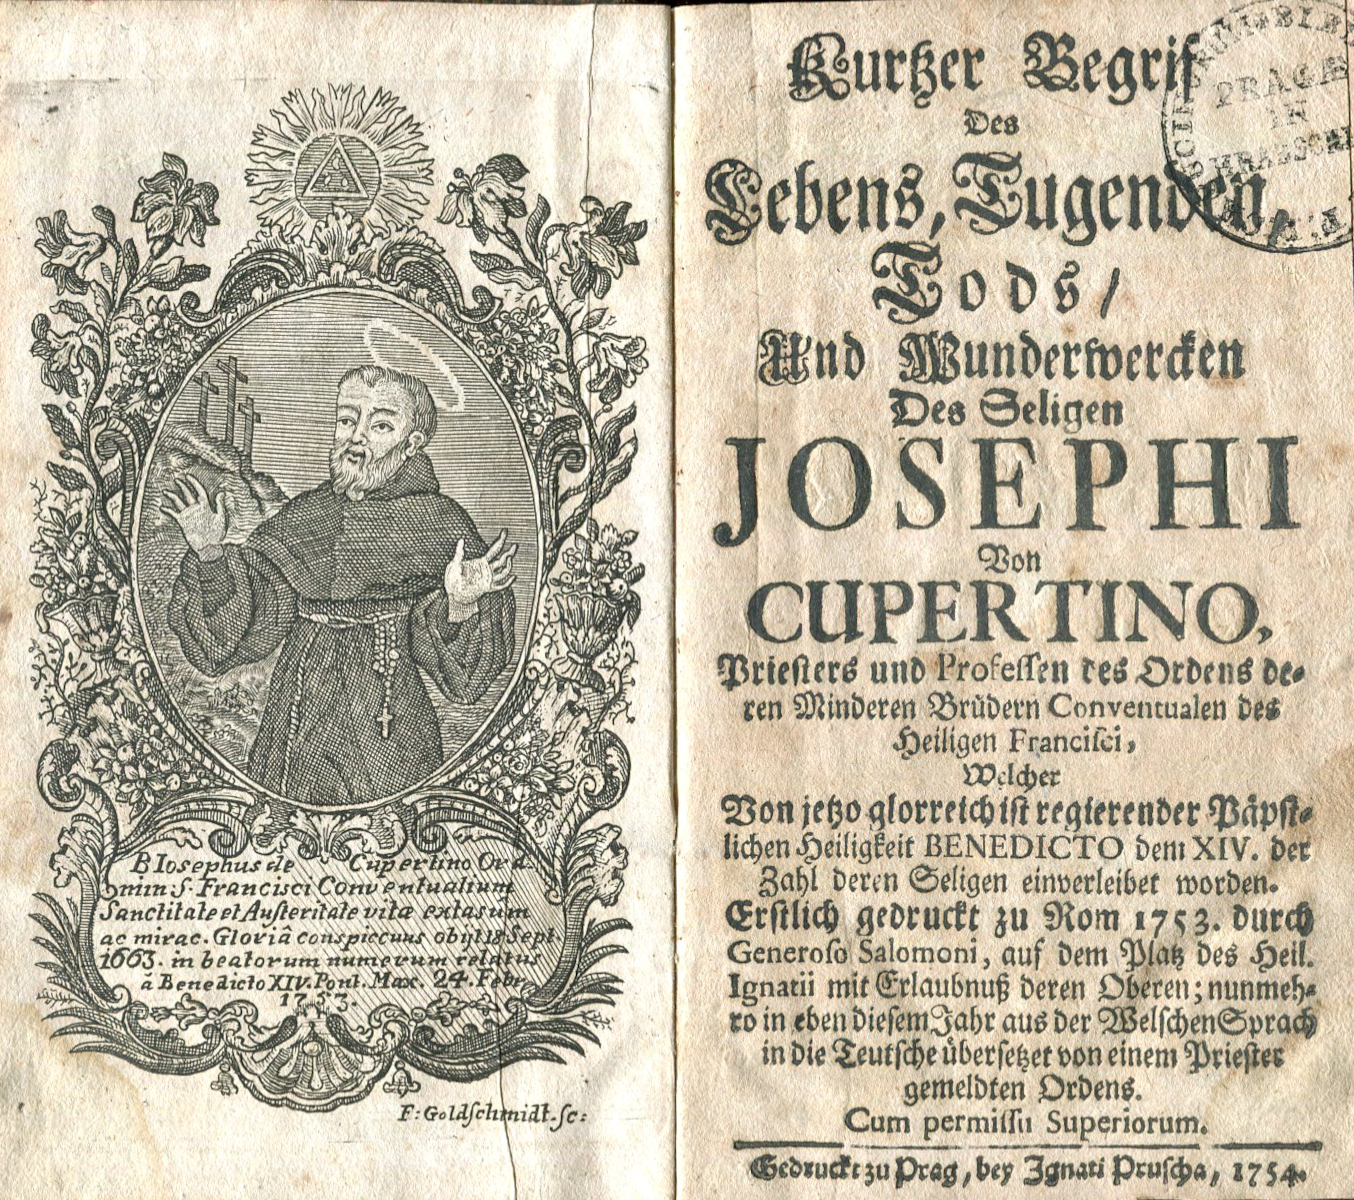 B Iosephus de Cupertino Ord.
min S. Francisci Conventualium
Sanctitate et Austeritate vitæ extasum
ac mirac. Gloriâ conspiccuus obijt 18 Sept
1663. in beatorum numerum relatus
â Benedicto XIV. Pont. Max. 24. Febr.
1753.
F: Goldschmidt. sc:
Kurtzer Begrif
Des
Lebens, Tugenden,
Tods/
Und Wunderwercken
Des Seligen
JOSEPHI
Von
CUPERTINO,
Priesters und Professen des Ordens de-
ren Minderen Brüdern Conventualen des
Heiligen Francisci,
Welcher
Von jetzo glorreichist regierender Päpst-
lichen Heiligkeit BENEDICTO dem XIV. der
Zahl deren Seligen einverleibet worden.
Erstlich gedruckt zu Rom 1753. durch
Generoso Salomoni, auf dem Platz des Heil.
Ignatii mit Erlaubnuß deren Oberen; nunmeh-
ro in eben diesem Jahr aus der Welschen Sprach
in die Teutsche übersetzet von einem Priester
gemeldten Ordens.
Cum permissu Superiorum.
Gedruckt zu Prag, bey Ignati Pruscha, 1754.
PRAGÆ
IN